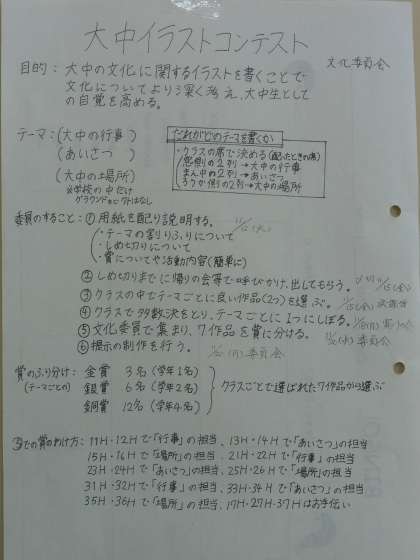 大中イラストコンテスト
文化委員会
目的：大中の文化に関するイラストを書くことで
文化についてより深く考え、大中生として
の自覚を高める。
テーマ：(大中の行事)
(あいさつ)
(大中の場所)
※学校の中だけ
グラウンドetcはなし
だれがどのテーマを書くか
・クラスの席で決める(配ったときの席)
窓側の2列→大中の行事
まん中の2列→あいさつ
ろうか側の2列→大中の場所
委員のすること：①用紙を配り説明する。
・テーマの割りふりについて
・しめ切りについて
・賞についてや活動内容(簡単に)
②しめ切りまでに帰りの会等で呼びかけ、出してもらう。
③クラスの中でテーマごとに良い作品(2つ)を選ぶ。
④クラスで多数決をとり、テーマごとに1つにしぼる。
⑤文化委員で集まり、7作品を賞に分ける。
⑥掲示の制作を行う。
委員会
委員会
賞のふり分け：金賞 3名(学年1名)
(テーマごとの) 銀賞 6名(学年2名)
銅賞 12名(学年4名)
クラスごとで選ばれた7作品から選ぶ
での賞のわけ方：11H・12Hで「行事」の担当、13H・14Hで「あいさつ」の担当
15H・16Hで「場所」の担当、21H・22Hで「行事」の担当
23H・24Hで「あいさつ」の担当、25H・26Hで「場所」の担当
31H・32Hで「行事」の担当、33H・34Hで「あいさつ」の担当
35H・36Hで「場所」の担当、17H・27H・37Hはお手伝い